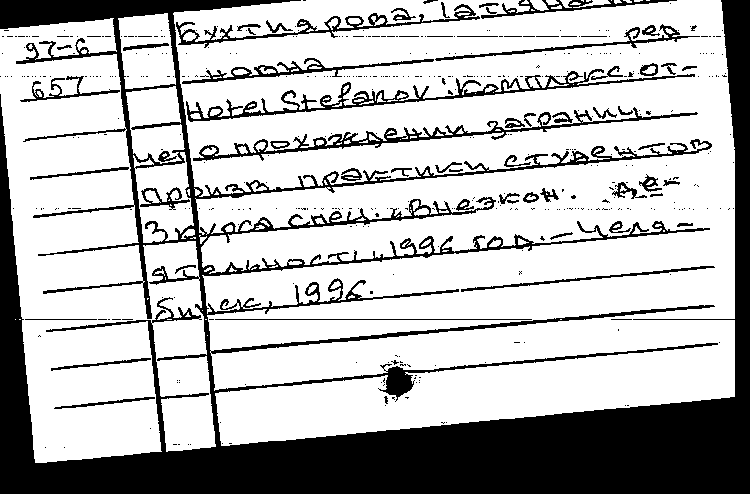 97-6
657
Бухтиярова, Татьяна
новна, ред.
Hotel Stefanov : Комплекс. от-
чет о прохождении заграниц.
произв. практики студентов
3 курса спец. „Внеэкон. де-
ятельность„ 1996 год. – Челя-
бинск, 1996.